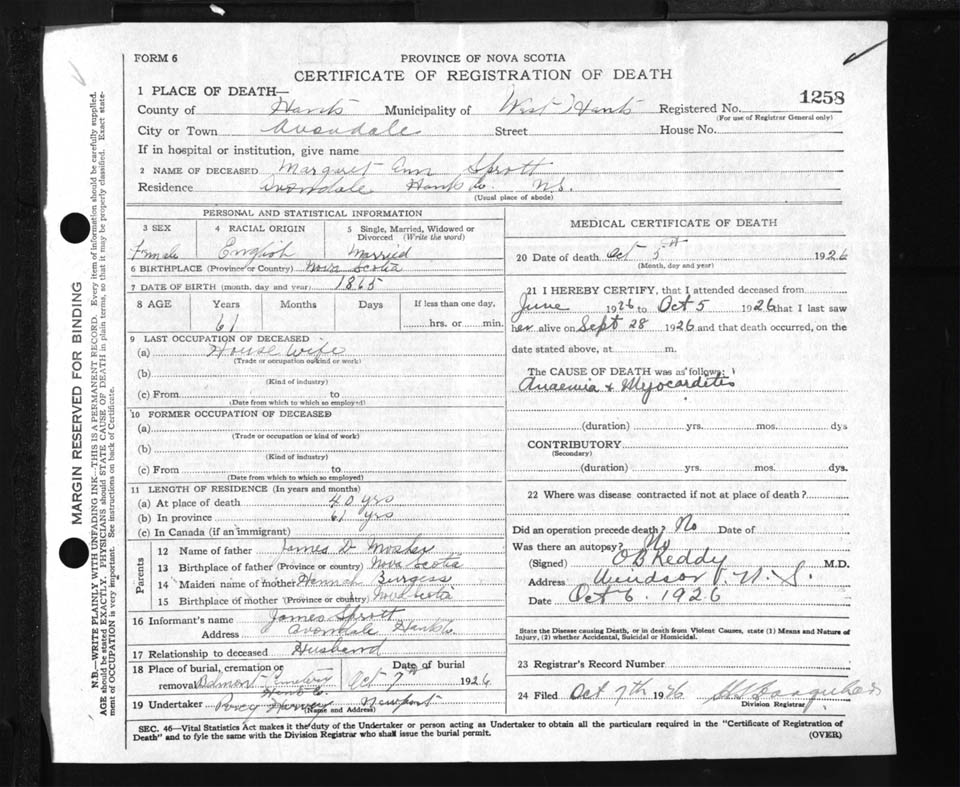 FORM 6
PROVINCE OF NOVA SCOTIA
CERTIFICATE OF REGISTRATION OF DEATH
1 PLACE OF DEATH—
County of Hants Municipality of West Hants Registered No. 1258
(For use of Registrar General only)
City or Town Avondale Street House No.
If in hospital or institution, give name
2 NAME OF DECEASED Margaret Ann Sprott
Residence Avondale Hants Co. N.S.
(Usual place of abode)
PERSONAL AND STATISTICAL INFORMATION
3 SEX 4 RACIAL ORIGIN 5 Single, Married, Widowed or Divorced (Write the word)
Female English Married
6 BIRTHPLACE (Province or Country) Nova Scotia
7 DATE OF BIRTH (month, day and year) 1865
8 AGE Years Months Days If less than one day,
61 hrs. or min.
9 LAST OCCUPATION OF DECEASED
(a) House Wife
(Trade or occupation or kind of work)
(b)
(Kind of industry)
(c) From to
(Date from which to which so employed)
10 FORMER OCCUPATION OF DECEASED
(a)
(Trade or occupation or kind of work)
(b)
(Kind of industry)
(c) From to
(Date from which to which so employed)
11 LENGTH OF RESIDENCE (In years and months)
(a) At place of death 40 yrs
(b) In province 61 yrs
(c) In Canada (if an immigrant)
Parents
12 Name of father James D Mosher
13 Birthplace of father (Province or country) Nova Scotia
14 Maiden name of mother Hannah Burgess
15 Birthplace of mother (Province or country) Nova Scotia
16 Informant's name James Sprott
Address Avondale Hants Co.
17 Relationship to deceased Husband
18 Place of burial, cremation or removal Belmont Cemetery Hants Co. Date of burial Oct 7th 1926
19 Undertaker Percy Harvey Newport
(Name and Address)
MEDICAL CERTIFICATE OF DEATH
20 Date of death Oct 5th 1926
(Month, day and year)
21 I HEREBY CERTIFY, that I attended deceased from
June 1926 to Oct 5 1926 that I last saw
her alive on Sept 28 1926 and that death occurred, on the
date stated above, at m.
The CAUSE OF DEATH was as follows:
Anaemia & Myocarditis
(duration) yrs. mos. dys
CONTRIBUTORY
(Secondary)
(duration) yrs. mos. dys.
22 Where was disease contracted if not at place of death?
Did an operation precede death? No Date of
Was there an autopsy? No
(Signed) O B Keddy M.D.
Address Windsor N.S.
Date Oct 6. 1926
State the Disease causing Death, or in death from Violent Causes, state (1) Means and Nature of
Injury, (2) whether Accidental, Suicidal or Homicidal.
23 Registrar's Record Number
24 Filed Oct 7th 1926
Division Registrar
SEC. 46—Vital Statistics Act makes it the duty of the Undertaker or person acting as Undertaker to obtain all the particulars required in the "Certificate of Registration of
Death" and to fyle the same with the Division Registrar who shall issue the burial permit.
(OVER)
MARGIN RESERVED FOR BINDING
N.B.—WRITE PLAINLY WITH UNFADING INK—THIS IS A PERMANENT RECORD. Every item of information should be carefully supplied.
AGE should be stated EXACTLY. PHYSICIANS should STATE CAUSE OF DEATH in plain terms, so that it may be properly classified. Exact state-
ment of OCCUPATION is very important. See instructions on back of Certificate.